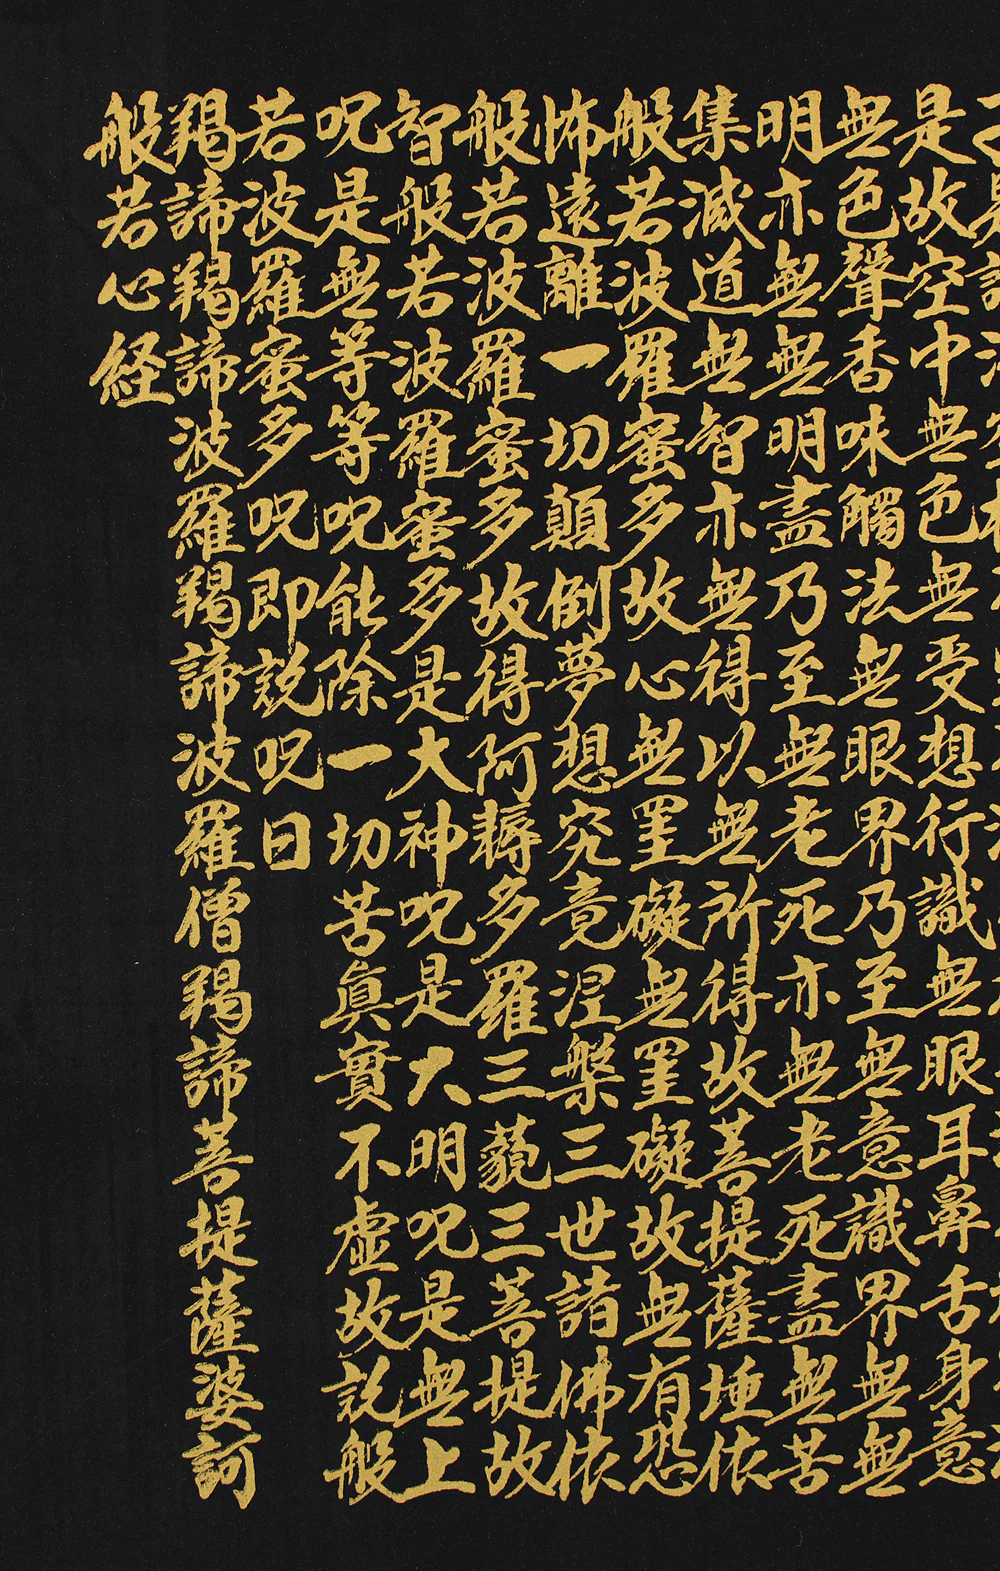 是故空中無色無受想行識無眼耳鼻舌身意
無色聲香味觸法無眼界乃至無意識界無無
明亦無無明盡乃至無老死亦無老死盡無苦
集滅道無智亦無得以無所得故菩提薩埵依
般若波羅蜜多故心無罣礙無罣礙故無有恐
怖遠離一切顛倒夢想究竟涅槃三世諸佛依
般若波羅蜜多故得阿耨多羅三藐三菩提故
智般若波羅蜜多是大神呪是大明呪是無上
呪是無等等呪能除一切苦眞實不虛故説般
若波羅蜜多呪即説呪曰
羯諦羯諦波羅羯諦波羅僧羯諦菩提薩婆訶
般若心経